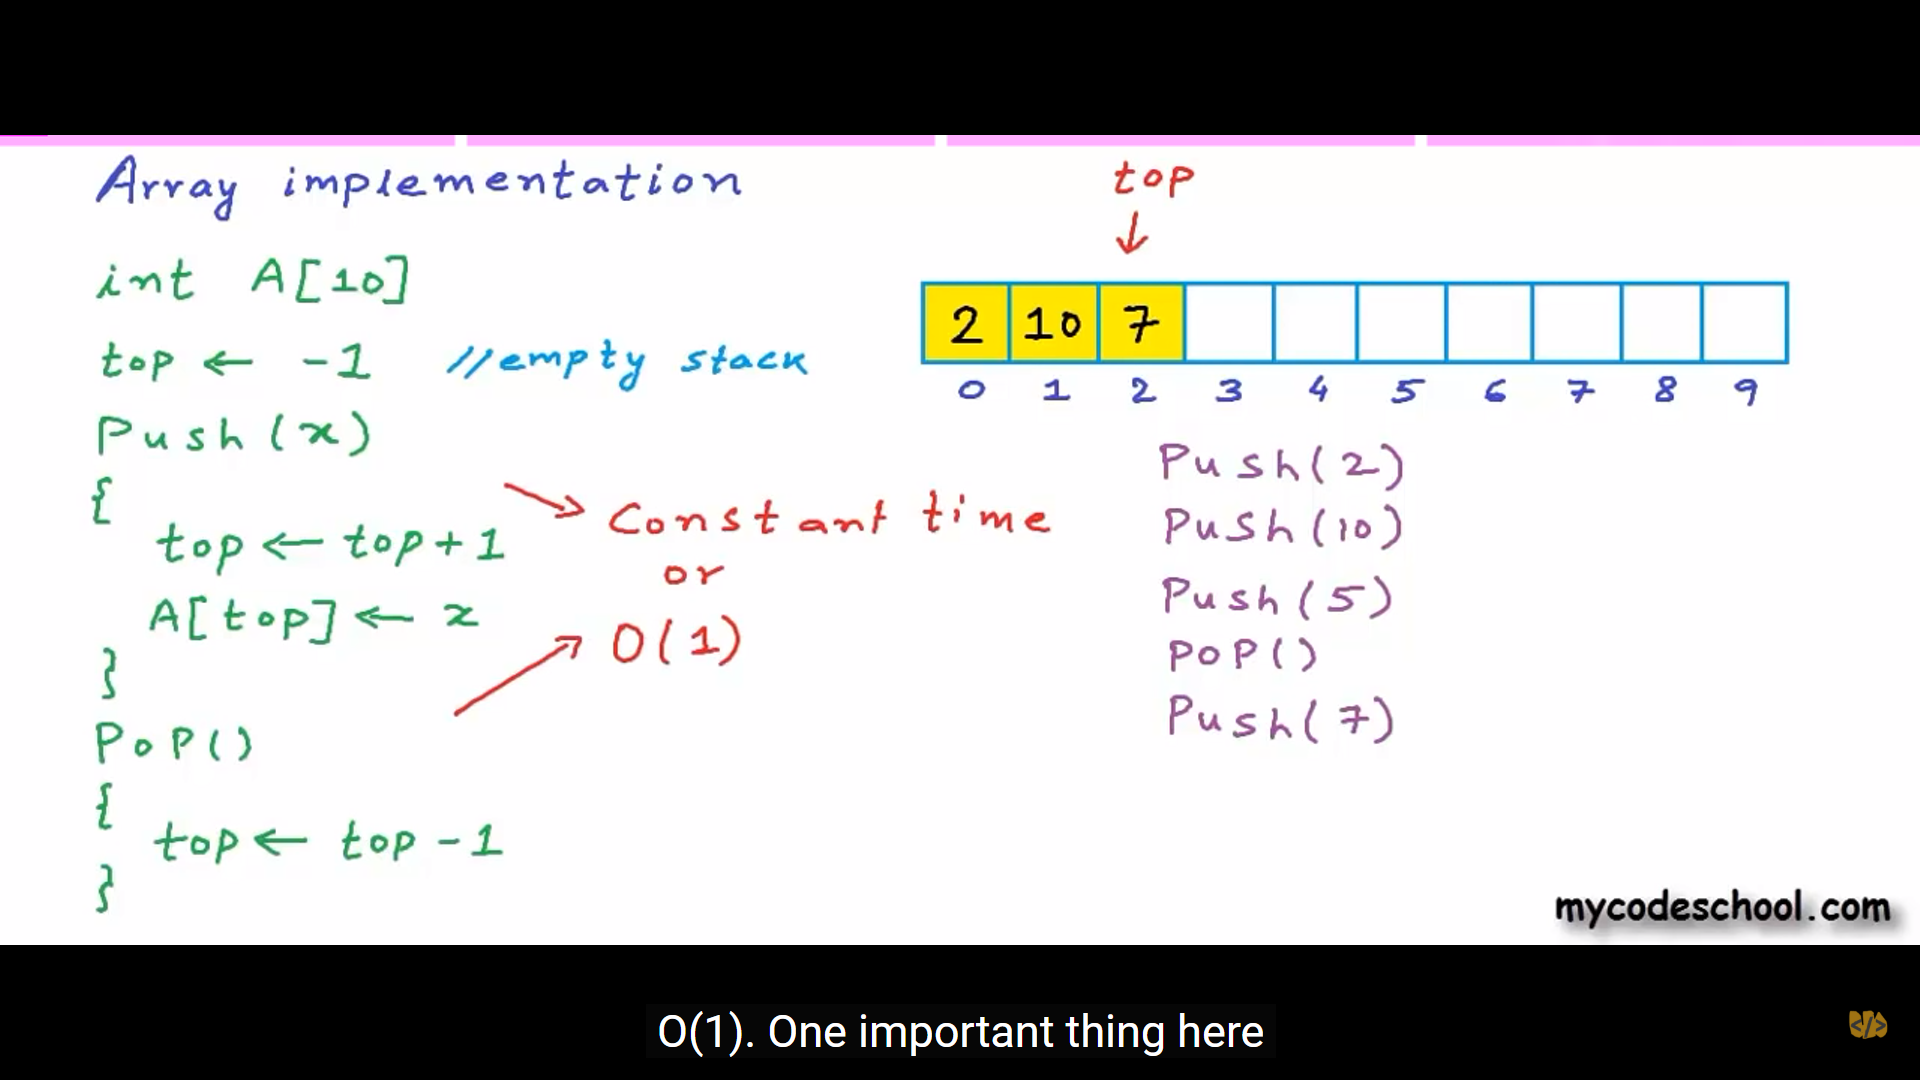 Array implementation
int A[10]
top ← -1 //empty stack
Push(x)
{
top ← top+1
A[top] ← x
}
Pop()
{
top ← top -1
}
Constant time
or
O(1)
top
↓
2 10 7
0 1 2 3 4 5 6 7 8 9
Push(2)
Push(10)
Push(5)
Pop()
Push(7)
mycodeschool.com
O(1). One important thing here